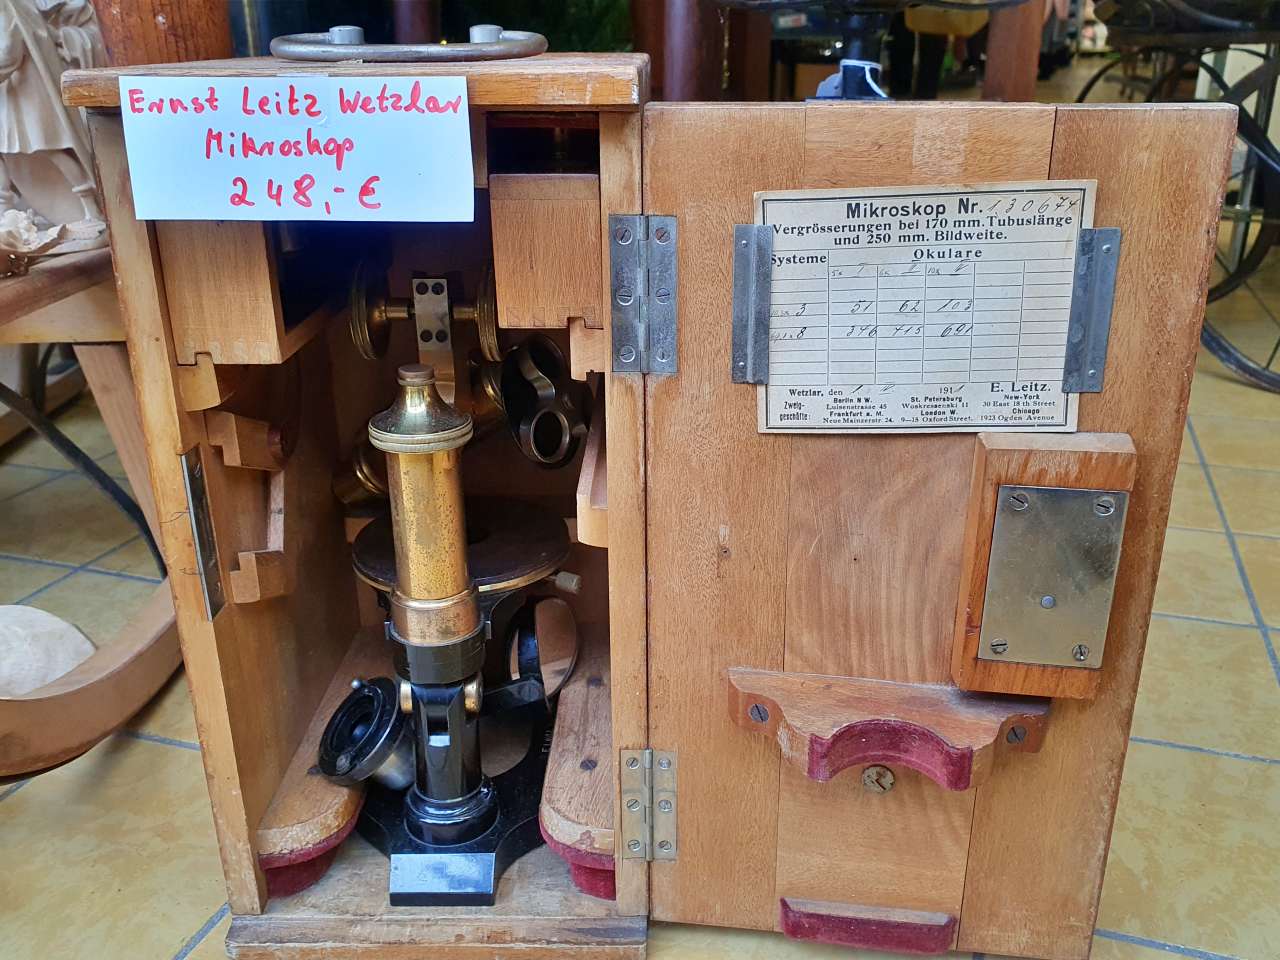 Ernst Leitz Wetzlar
Mikroskop
248,- €
Mikroskop Nr. 130674
Vergrösserungen bei 170 mm. Tubuslänge
und 250 mm. Bildweite.
Systeme Okulare
5x I 6x II 10x
3 51 62 103
8 346 415 691
Wetzlar, den 1. 1911 E. Leitz.
Zweig-
geschäfte:
Berlin N W.
Luisenstrasse 45
Frankfurt a. M.
Neue Mainzerstr. 24.
St. Petersburg
Woskressenski 11
London W.
9—15 Oxford Street.
New-York
30 East 18 th Street
Chicago
1923 Ogden Avenue